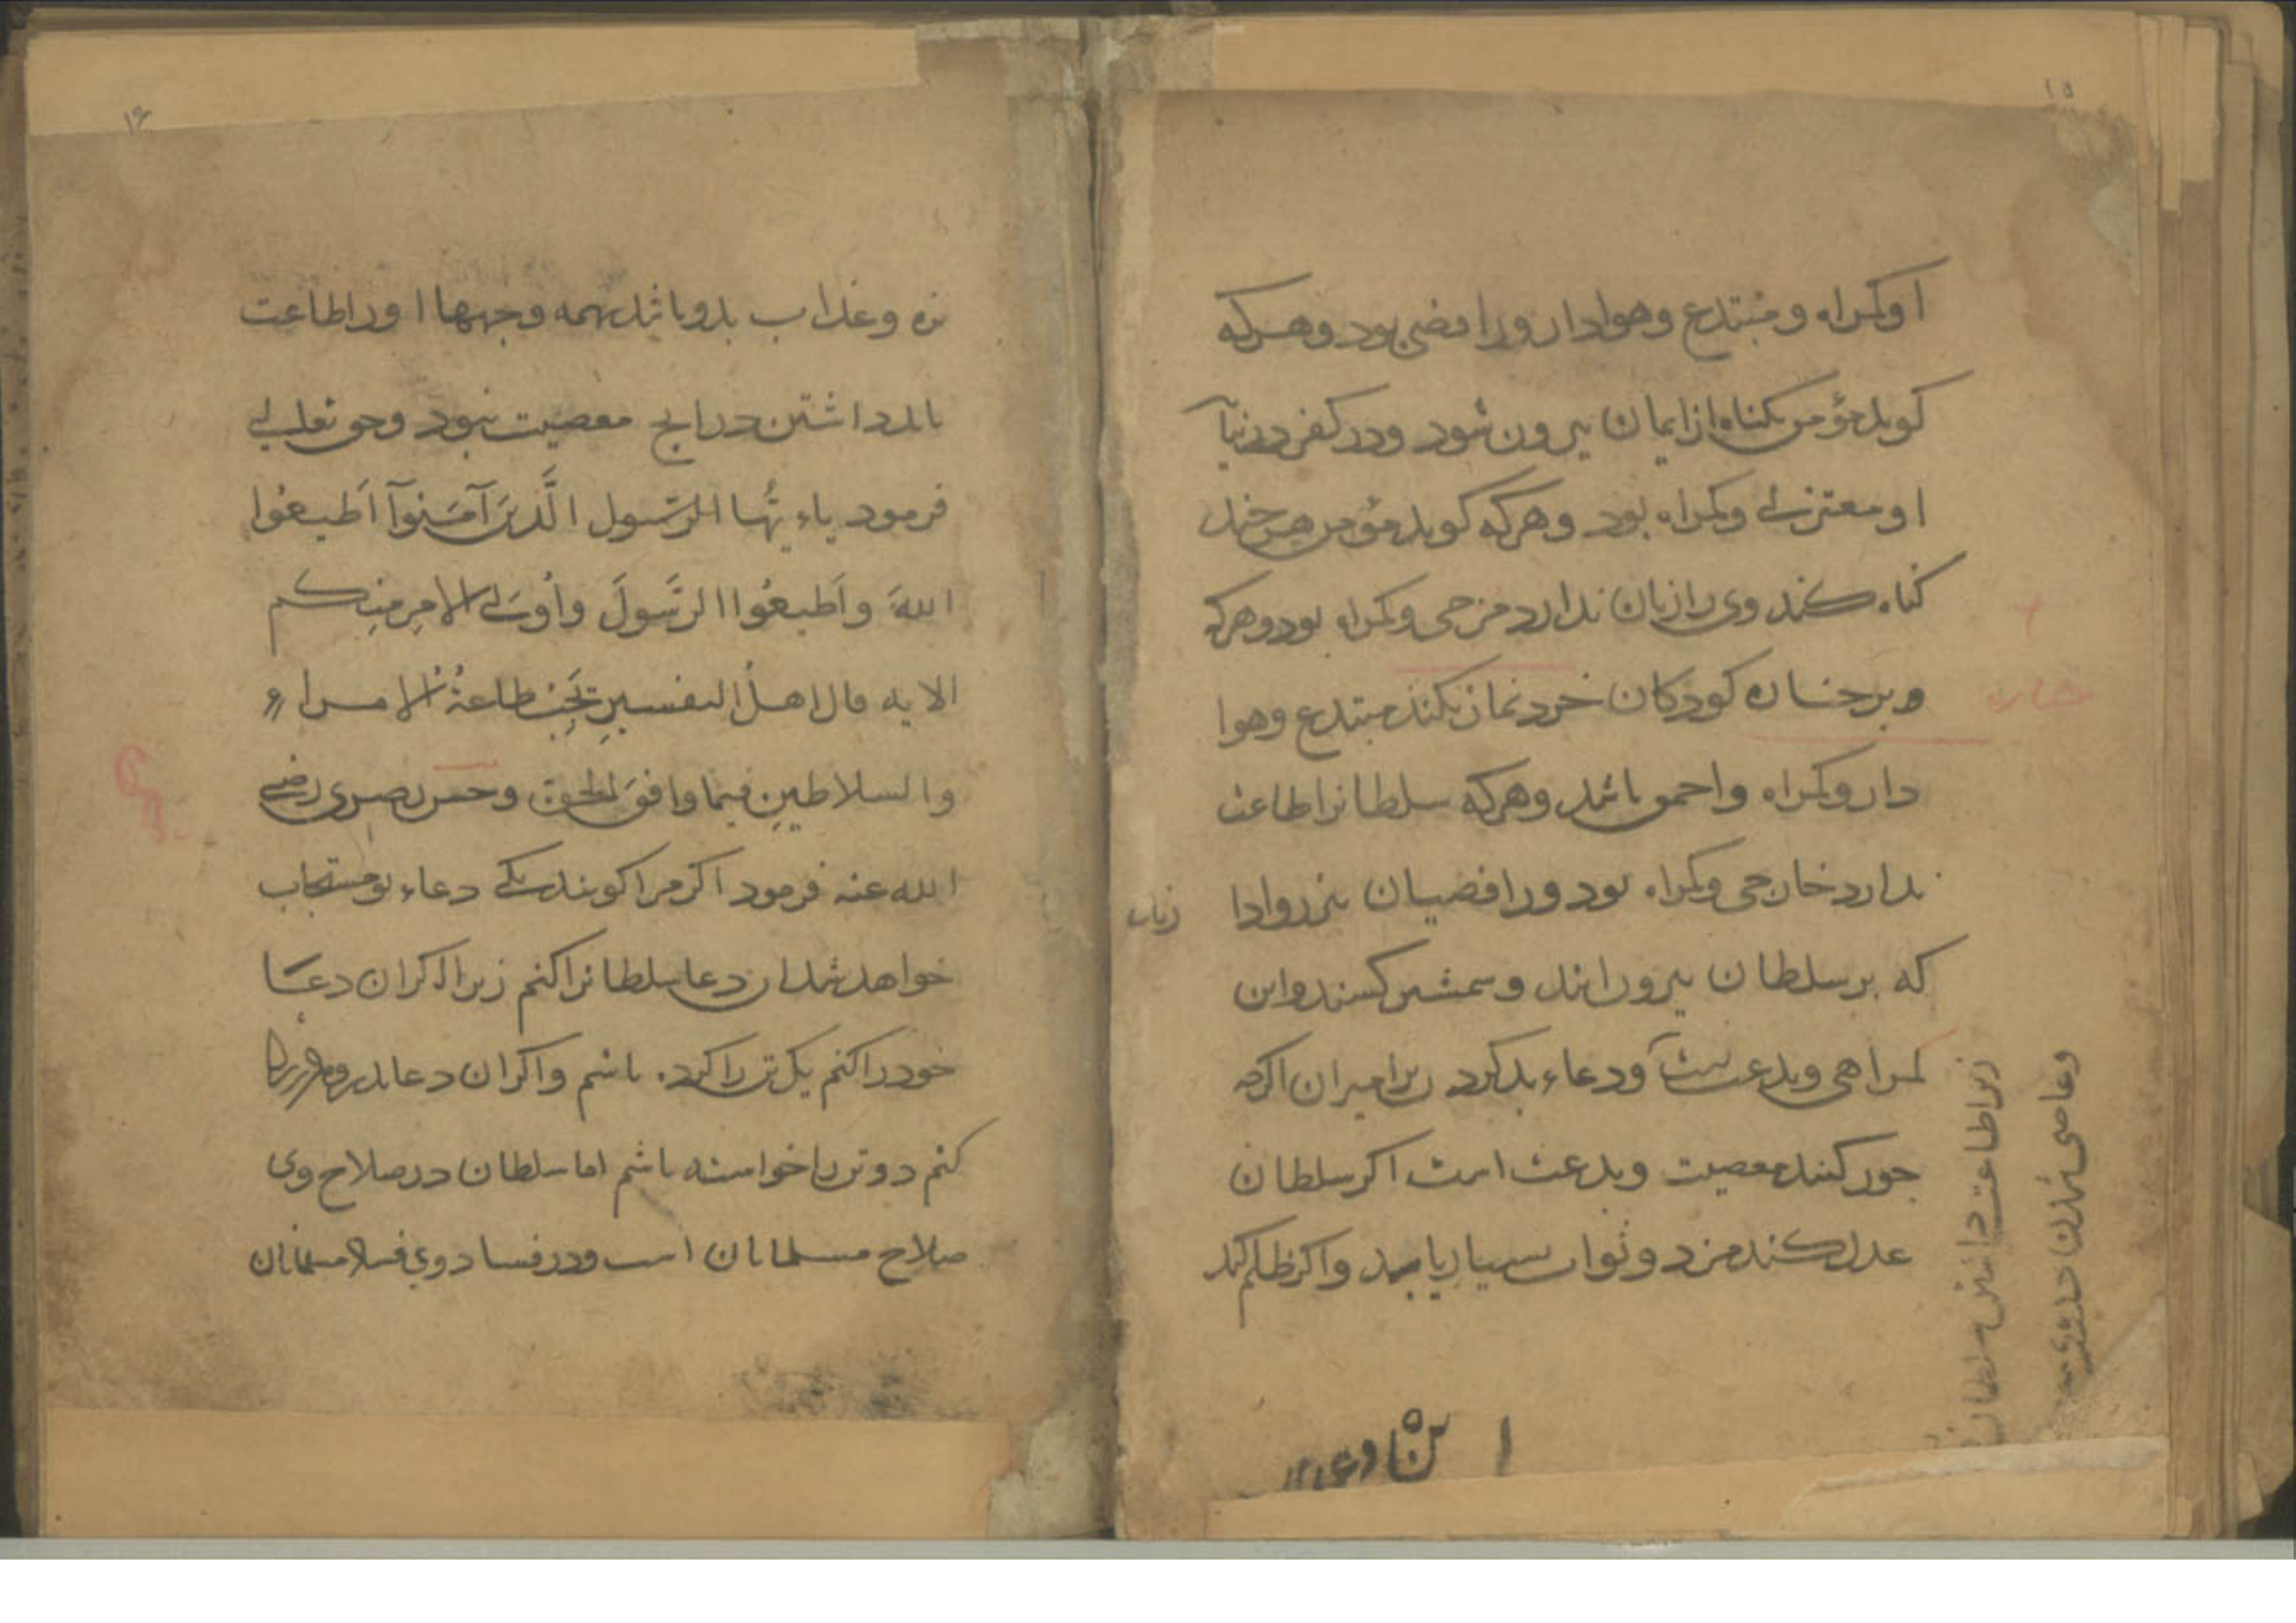 ۱۵
او کمراه و مبتدع وهوادار ورافضی بود وهرکه
کوید مؤمن بکناه از ایمان بیرون شود ودر کفر درنیاید
او معتزلی وکمراه بود وهرکه کوید مؤمن هرچند
کناه کند وی را زیان ندارد مرجی وکمراه بود وهرکه
وبر جنازه کودکان خرد نماز نکند مبتدع وهوا
دار وکمراه واحمق باشد وهرکه سلطانرا طاعت
ندارد خارجی وکمراه بود ورافضیان نیز روادا
رند
که بر سلطان بیرون آیند وشمشیر کشند واین
کمراهی وبدعتست ودعاء بد کردن بر امیران اکرچه
جور کنند معصیت وبدعت است اکر سلطان
عدل کند مزد وثواب بسیار یابد واکر ظلم کند
زیرا طاعت داشتن سلطان
وعاصی شدن در وی
جنازه
۱۶
بزه وعذاب بدو باشد بهمه وجهها اورا طاعت
باید داشتن در آنچ معصیت نبود وحق تعالی
فرمود یاءیُّها الرسول الَّذینَ آمَنوآ اَطیعُوا
اللهَ واَطیعُوا الرَّسُولَ واُولی الامرِ مِنکم
الایه قال اهلُ التفسیرِ تَجِبُ طاعةُ الامراءِ
والسلاطینِ فیما وافقَ الحق وحسن بصری رضی
الله عنه فرمود اکر مرا کویند یکی دعاء تو مستجاب
خواهد شد آن دعا سلطانرا کنم زیرا اکر آن دعا
خودرا کنم یک تن را کرده باشم واکر آن دعا
کنم دو تن را خواسته باشم اما سلطان در صلاح وی
صلاح مسلمانان است ودر فساد وی فساد مسلمانان